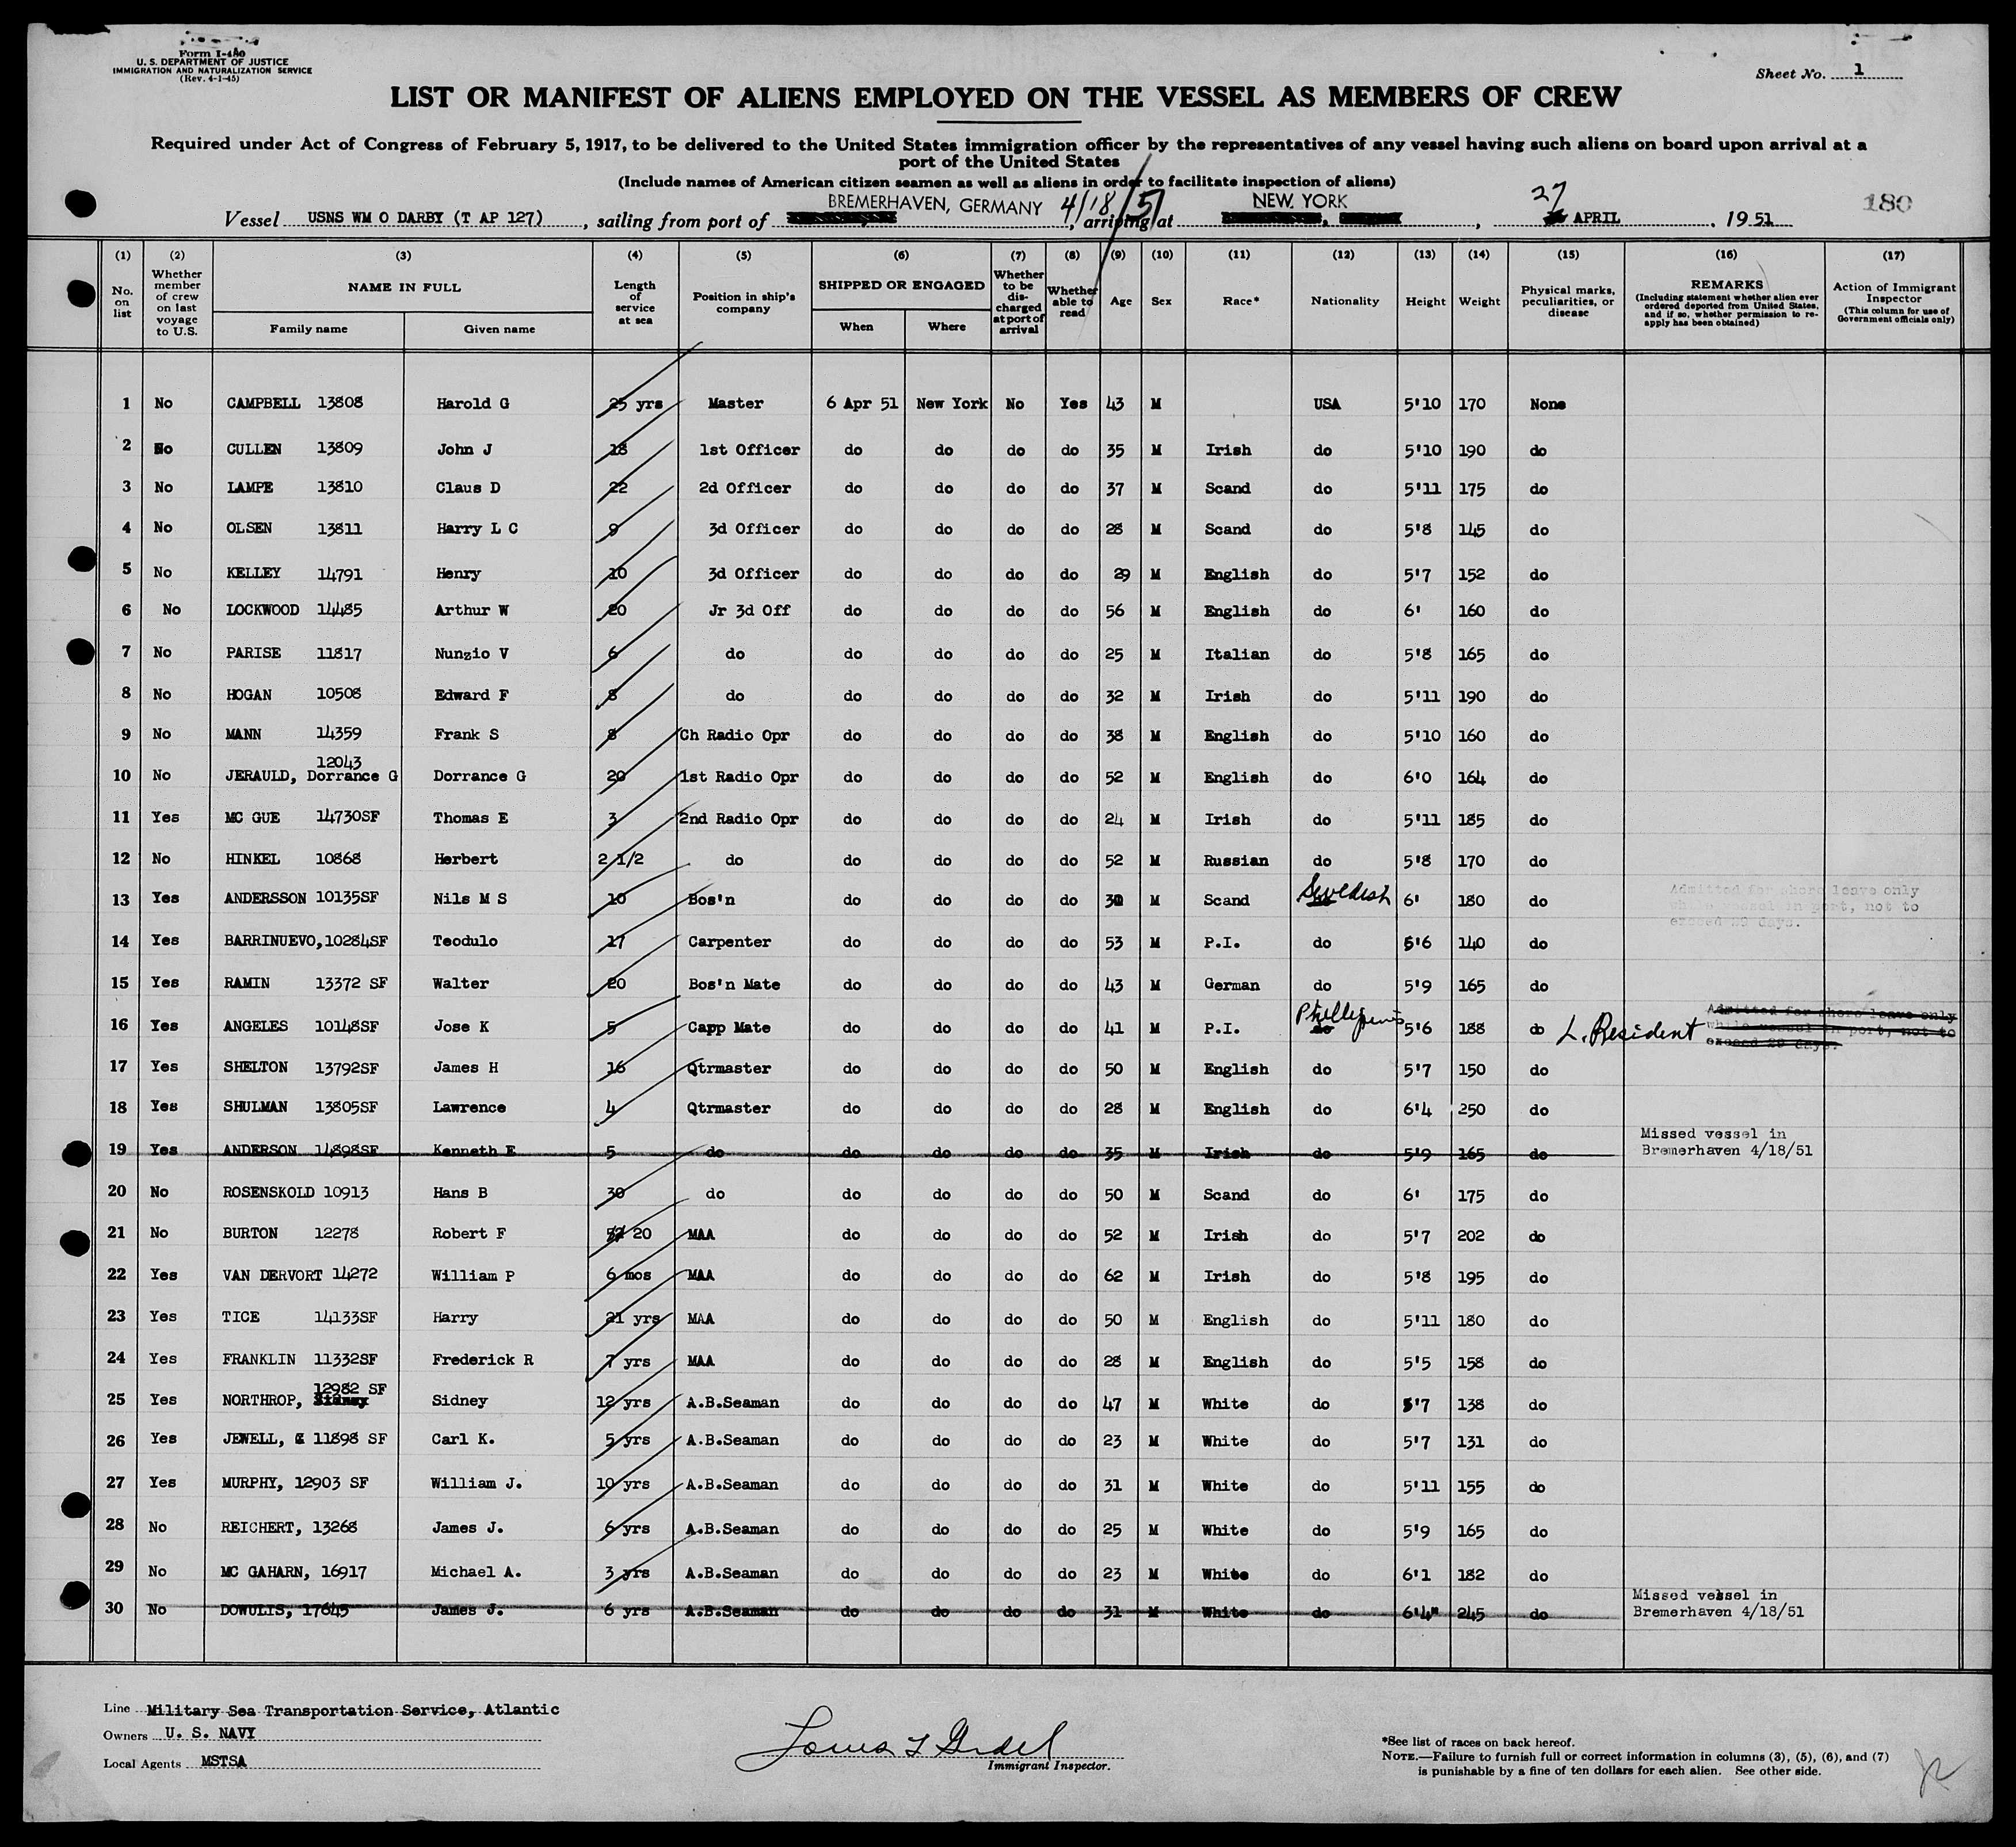 Form I-480
U. S. DEPARTMENT OF JUSTICE
IMMIGRATION AND NATURALIZATION SERVICE
(Rev. 4-1-45)
Sheet No. 1
LIST OR MANIFEST OF ALIENS EMPLOYED ON THE VESSEL AS MEMBERS OF CREW
Required under Act of Congress of February 5, 1917, to be delivered to the United States immigration officer by the representatives of any vessel having such aliens on board upon arrival at a
port of the United States
(Include names of American citizen seamen as well as aliens in order to facilitate inspection of aliens)
Vessel USNS WM O DARBY (T AP 127), sailing from port of BREMERHAVEN, GERMANY 4/18/51, arriving at NEW YORK, 27 APRIL, 1951
180
(1) (2) (3) (4) (5) (6) (7) (8) (9) (10) (11) (12) (13) (14) (15) (16) (17)
No. on list
Whether member of crew on last voyage to U.S.
NAME IN FULL
Family name
Given name
Length of service at sea
Position in ship's company
SHIPPED OR ENGAGED
When
Where
Whether to be discharged at port of arrival
Whether able to read
Age
Sex
Race*
Nationality
Height
Weight
Physical marks, peculiarities, or disease
REMARKS
(Including statement whether alien ever ordered deported from United States, and if so, whether permission to reapply has been obtained)
Action of Immigrant Inspector
(This column for use of Government officials only)
1 No CAMPBELL 13808 Harold G 25 yrs Master 6 Apr 51 New York No Yes 43 M USA 5'10 170 None
2 No CULLEN 13809 John J 18 1st Officer do do do do 35 M Irish do 5'10 190 do
3 No LAMPE 13810 Claus D 22 2d Officer do do do do 37 M Scand do 5'11 175 do
4 No OLSEN 13811 Harry L C 9 3d Officer do do do do 28 M Scand do 5'8 145 do
5 No KELLEY 14791 Henry 10 3d Officer do do do do 29 M English do 5'7 152 do
6 No LOCKWOOD 14485 Arthur W 20 Jr 3d Off do do do do 56 M English do 6' 160 do
7 No PARISE 11817 Nunzio V 6 do do do do do 25 M Italian do 5'8 165 do
8 No HOGAN 10508 Edward F 8 do do do do do 32 M Irish do 5'11 190 do
9 No MANN 14359 Frank S 8 Ch Radio Opr do do do do 38 M English do 5'10 160 do
10 No JERAULD, Dorrance G 12043 Dorrance G 20 1st Radio Opr do do do do 52 M English do 6'0 164 do
11 Yes MC GUE 14730SF Thomas E 3 2nd Radio Opr do do do do 24 M Irish do 5'11 185 do
12 No HINKEL 10868 Herbert 2 1/2 do do do do do 52 M Russian do 5'8 170 do
13 Yes ANDERSSON 10135SF Nils M S 10 Bos'n do do do do 30 M Scand Swedish 6' 180 do Admitted for shore leave only while vessel in port, not to exceed 29 days.
14 Yes BARRINUEVO, 10284SF Teodulo 17 Carpenter do do do do 53 M P.I. do 5'6 140 do
15 Yes RAMIN 13372 SF Walter 20 Bos'n Mate do do do do 43 M German do 5'9 165 do
16 Yes ANGELES 10148SF Jose K 5 Capp Mate do do do do 41 M P.I. do 5'6 188 do L. Resident Admitted for shore leave only while vessel in port, not to exceed 29 days.
17 Yes SHELTON 13792SF James H 16 Qtrmaster do do do do 50 M English do 5'7 150 do
18 Yes SHULMAN 13805SF Lawrence 4 Qtrmaster do do do do 28 M English do 6'4 250 do
19 Yes ANDERSON 14898SF Kenneth E 5 do do do do do 35 M Irish do 5'9 165 do Missed vessel in Bremerhaven 4/18/51
20 No ROSENSKOLD 10913 Hans B 30 do do do do do 50 M Scand do 6' 175 do
21 No BURTON 12278 Robert F 20 MAA do do do do 52 M Irish do 5'7 202 do
22 Yes VAN DERVORT 14272 William P 6 mos MAA do do do do 62 M Irish do 5'8 195 do
23 Yes TICE 14133SF Harry 21 yrs MAA do do do do 50 M English do 5'11 180 do
24 Yes FRANKLIN 11332SF Frederick R 7 yrs MAA do do do do 28 M English do 5'5 158 do
25 Yes NORTHROP, Sidney 12982 SF Sidney 12 yrs A.B.Seaman do do do do 47 M White do 5'7 138 do
26 Yes JEWELL, 11898 SF Carl K. 5 yrs A.B.Seaman do do do do 23 M White do 5'7 131 do
27 Yes MURPHY, 12903 SF William J. 10 yrs A.B.Seaman do do do do 31 M White do 5'11 155 do
28 No REICHERT, 13268 James J. 6 yrs A.B.Seaman do do do do 25 M White do 5'9 165 do
29 No MC GAHARN, 16917 Michael A. 3 yrs A.B.Seaman do do do do 23 M White do 6'1 182 do
30 No DOWULIS, 17645 James J. 6 yrs A.B.Seaman do do do do 31 M White do 6'4" 245 do Missed vessel in Bremerhaven 4/18/51
Line Military Sea Transportation Service, Atlantic
Owners U. S. NAVY
Local Agents MSTSA
Immigrant Inspector.
*See list of races on back hereof.
NOTE.—Failure to furnish full or correct information in columns (3), (5), (6), and (7)
is punishable by a fine of ten dollars for each alien. See other side.